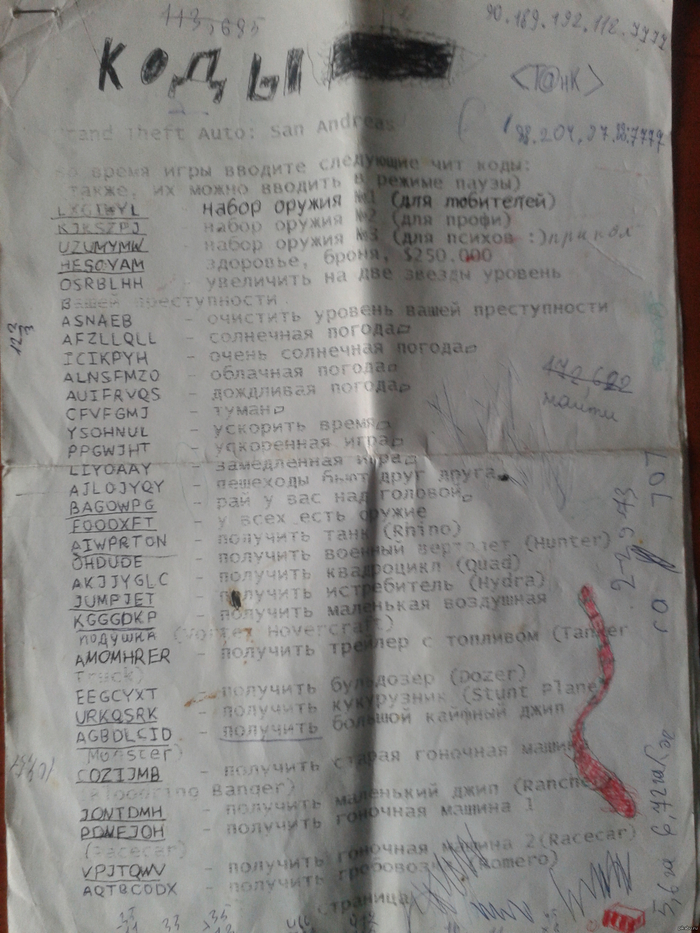 113,695
90.189.192.112.7777
КОДЫ
<Т@нК>
Grand Theft Auto: San Andreas
Во время игры вводите следующие чит коды:
также, их можно вводить в режиме паузы)
LXGIWYL - набор оружия №1 (для любителей)
KJKSZPJ - набор оружия №2 (для профи)
UZUMYMW - набор оружия №3 (для психов :) прикол
HESOYAM - здоровье, броня, $250.000
OSRBLHH - увеличить на две звезды уровень
Вашей преступности
ASNAEB - очистить уровень вашей преступности
AFZLLQLL - солнечная погода
ICIKPYH - очень солнечная погода
ALNSFMZO - облачная погода
AUIFRVQS - дождливая погода
CFVFGMJ - туман
YSOHNUL - ускорить время
PPGWJHT - ускоренная игра
LIYOAAY - замедленная игра
AJLOJYQY - пешеходы бьют друг друга
BAGOWPG - рай у вас над головой
FOOOXFT - у всех есть оружие
AIWPRTON - получить танк (Rhino)
OHDUDE - получить военный вертолет (Hunter)
AKJJYGLC - получить квадроцикл (Quad)
JUMPJET - получить истребитель (Hydra)
KGGGDKP - получить маленькая воздушная
подушка (Vortex Hovercraft)
AMOMHRER - получить трейлер с топливом (Tanker
Truck)
EEGCYXT - получить бульдозер (Dozer)
URKQSRK - получить кукурузник (Stunt Plane)
AGBDLCID - получить большой кайфный джип
(Monster)
CQZIJMB - получить старая гоночная машина
(Bloodring Banger)
JQNTDMH - получить маленький джип (Rancher)
PDNEJOH - получить гоночная машина 1
(Racecar)
VPJTQWV - получить гоночная машина 2(Racecar)
AQTBCODX - получить гробовоз (Romero)
страница
найти